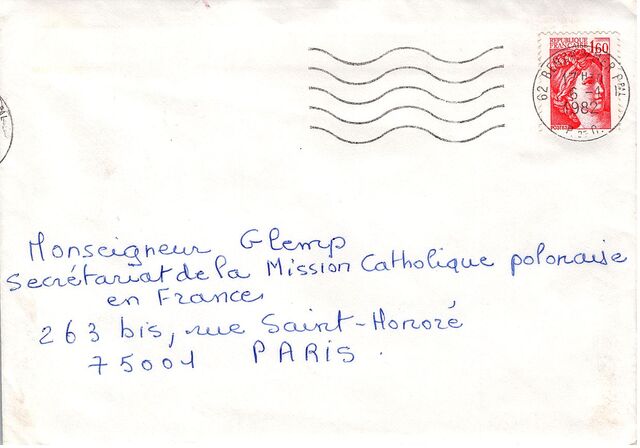 REPUBLIQUE
FRANCAISE 1,60
62
17 H
6 - 1
1982
P. DE C.
POSTES
Monseigneur Glemp
Secrétariat de la Mission Catholique polonaise
en France
263 bis, rue Saint-Honoré
75001 PARIS.